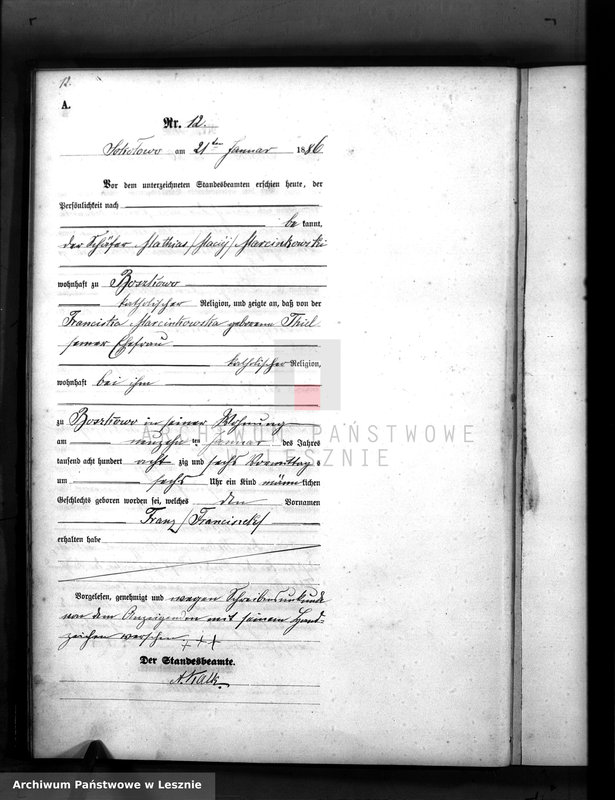 12.
A.
Nr. 12.
Sokołowo am 21ten Januar 1886
Vor dem unterzeichneten Standesbeamten erschien heute, der
Persönlichkeit nach
bekannt,
der Schäfer Mathias /Maciej/ Marcinkowski
wohnhaft zu Boszkowo
katholischer Religion, und zeigte an, daß von der
Franciska Marcinkowska geborene Thiel
seiner Ehefrau
katholischer Religion,
wohnhaft bei ihm
zu Boszkowo in seiner Wohnung
am neunzehnten Januar des Jahres
tausend acht hundert achtzig und sechs Vormittags
um sechs Uhr ein Kind männlichen
Geschlechts geboren worden sei, welches den Vornamen
Franz /Franciszek/
erhalten habe
Vorgelesen, genehmigt und wegen Schreibensunkunde
von dem Anzeigenden mit seinem Hand-
zeichen versehen. +++
Der Standesbeamte.
ARCHIWUM PAŃSTWOWE
W LESZNIE
Archiwum Państwowe w Lesznie